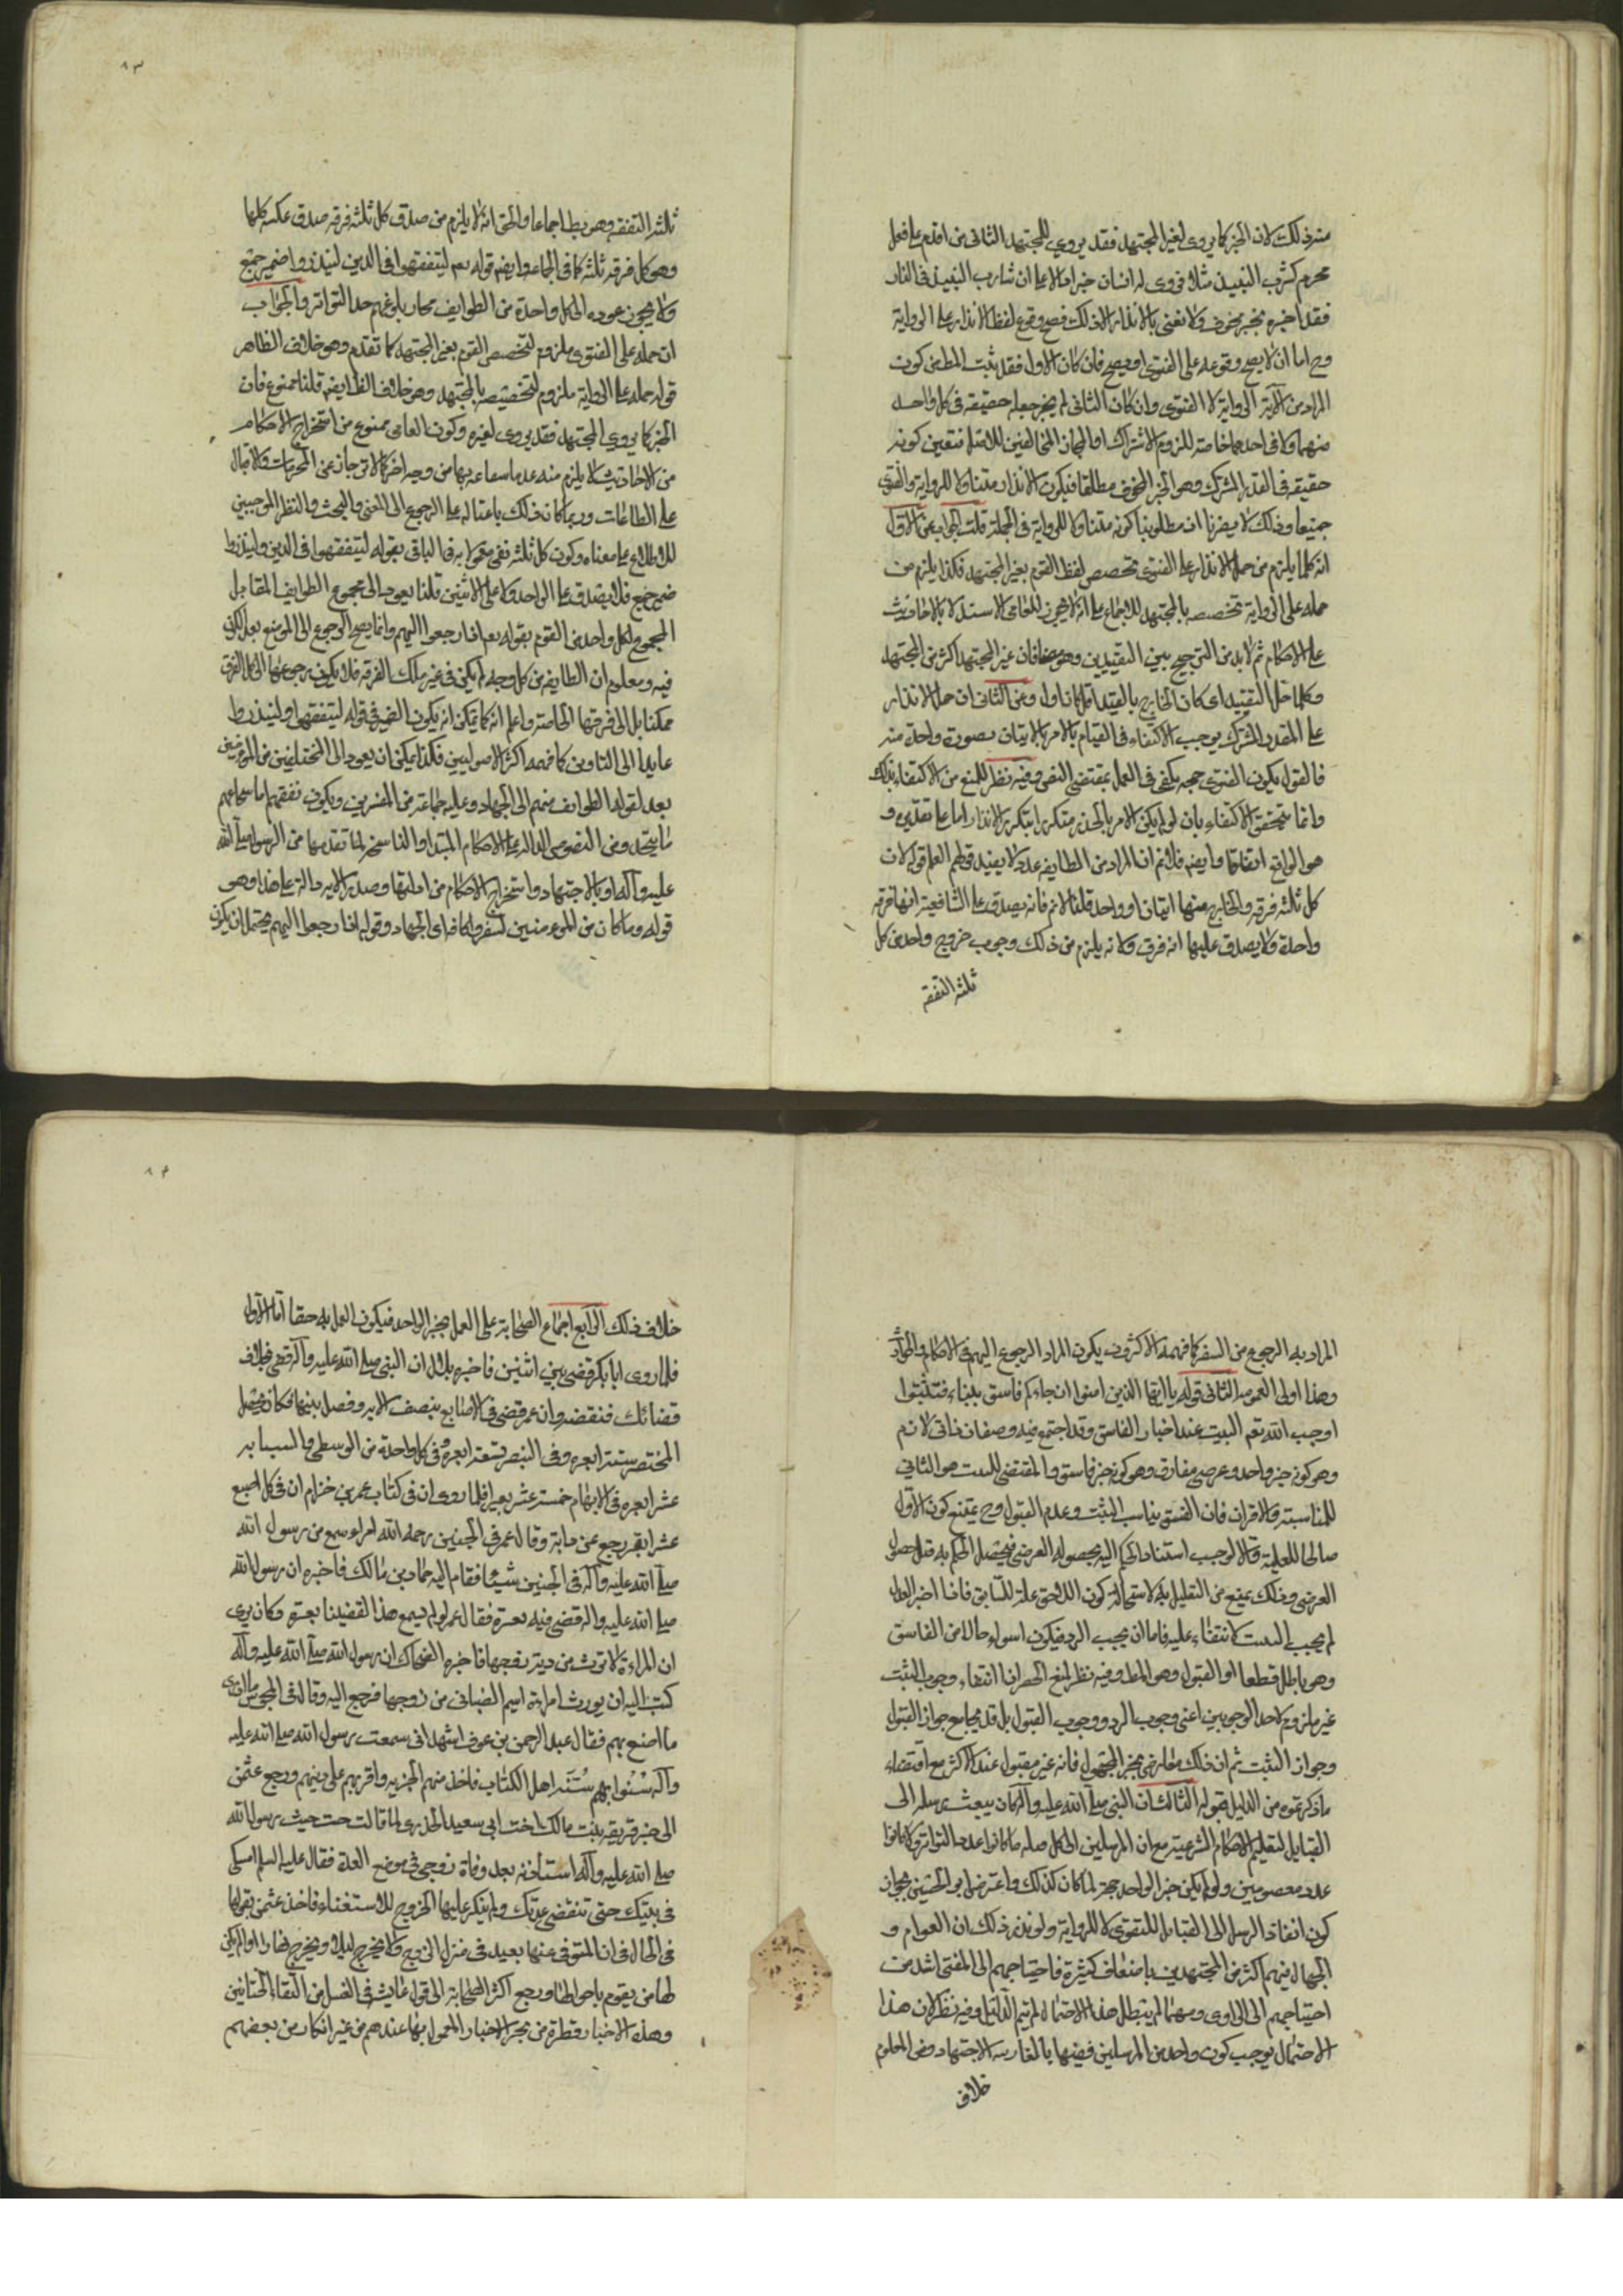 منه ذلك لان الخبر كما يروى لغير المجتهد فقد يروى للمجتهد الثانى من اقدم على فعل
محرم كشرب النبيذ مثلا فروى له انسان خبرا دالا على ان شارب النبيذ فى النار
فقد اخبره بخبر مخوف ولا نعنى بالانذار الا ذلك فصح وقوع لفظ الانذار على الرواية
وح اما ان لا يصح وقوعه على الفتوى او يصح فان كان الاول فقد ثبت المط من كون
المراد من الآية الرواية لا الفتوى وان كان الثانى لم يجز جعله حقيقه فى كل واحد
منهما ولا فى احدهما خاصة للزوم الاشتراك او المجاز المخالفين للاصل فتعين كونه
حقيقه فى القدر المشترك وهو الخبر المخوف مطلقا فيكون الانذار متناولا للرواية والفتوى
جميعا وذلك لا يضرنا اذ مطلوبنا كونه متناولا للرواية فى الجملة قلت الجواب عن الاول
انه كما يلزم من حمل الانذار على الفتوى تخصيص لفظ القوم بغير المجتهد فكذا يلزم من
حمله على الرواية تخصيصه بالمجتهد للاجماع على انه لا يجوز للعامى الاستدلال بالاحاديث
على الاحكام ثم لا بد من الترجيح بين التقييدين وهو معنا فان غير المجتهد اكثر من المجتهد
وكلما قل التقييد اى كان الخارج بالقيد اقل كان اولى وعن الثانى ان حمل الانذار
على القدر المشترك يوجب الاكتفاء فى القيام بالامر بالاتيان بصورة واحدة منه
فالقول بكون الفتوى حجه يكفى فى العمل بمقتضى النص وفيه نظر للمنع من الاكتفاء بذلك
وانما يتحقق الاكتفاء بان لو لم يكن الامر بالحذر متكررا بتكرر الانذار اما على تقديره و
هو الواقع اتفاقا فلا وايضا فلا نم ان المراد من الطايفه عدد لا يفيد قولهم العلم قوله لان
كل ثلثه فرقه والخارج منها اثنان او واحد قلنا لا نم فانه يصدق على الشافعية انها فرقه
واحدة ولا يصدق عليها انه فرق ولانه يلزم من ذلك وجوب خروج واحد من كل
ثلثه التفقه
ثلثه التفقه وهو بط اجماعا والحق انه لا يلزم من صدق كل ثلثه فرقه صدق عكسه كليا
وهو كل فرقه ثلثه كما فى الجماعه وايضا قوله تعم ليتفقهوا فى الدين لينذروا ضمير جمع
ولا يجوز عوده الى كل واحدة من الطوايف فجاز بلوغهم حد التواتر والجواب
ان حمله على الفتوى ملزوم لتخصيص القوم بغير المجتهد كما تقدم وهو خلاف الظاهر
قوله حمله على الرواية ملزوم لتخصيصه بالمجتهد وهو خلاف الظ ايضا قلنا ممنوع فان
الخبر كما يروى المجتهد فقد يروى لغيره وكون العامى ممنوع من استخراج الاحكام
من الاحاديث لا يلزم منه عدم انتفاعه بها من وجه اخر كالانزجار عن المحرمات والاقبال
على الطاعات وربما كان ذلك باعثا له على الرجوع الى المفتى والبحث والنظر الموجبين
للاطلاع على معناه وكون كل ثلثه نفر معمولا به فى الباقى بقوله ليتفقهوا فى الدين ولينذروا
ضمير جمع فلا يصدق على الواحد ولا على الاثنين قلنا يعود الى مجموع الطوايف المقابل
لمجموع ولكل واحد من القوم بقوله تعم اذا رجعوا اليهم وانما يصح الرجوع الى الموضع بعد الكون
فيه ومعلوم ان الطايفه من كل وجه لم يكن فى غير تلك الفرقه فلا يكون رجوعها الى كل الفرق
ممكنا بل الى فرقتها الخاصة واعلم انه كما يمكن ان يكون الضمير فى قوله ليتفقهوا ولينذروا
عايدا الى الثاوين كما فهمه اكثر الاصوليين فكذا يمكن ان يعود الى المتخلفين من المؤمنين
بعد لقوله الطوايف منهم الى الجهاد وعليه جماعة من المفسرين ويكون تفقههم اما سماعهم
ما يتجدد من النصوص الداله على الاحكام المبتداه والناسخه لما تقدمها من الرسول صلى الله
عليه وآله او بالاجتهاد واستخراج الاحكام من ادلتها وصدر الآيه داله على هذا وهو
قوله وما كان من المؤمنين لينفروا كافة اى الجهاد وقوله اذا رجعوا اليهم يحتمل ان يكون
المراد به الرجوع من السفر كما فهمه الاكثرون يكون المراد الرجوع اليهم فى الاحكام والحوادث
وهذا اولى العموم الثانى قوله يا ايها الذين امنوا ان جاءكم فاسق بنباء فتثبتوا
اوجب الله تعم التثبت عند اخبار الفاسق وقد اجتمع فيه وصفان ذاتى لازم
وهو كونه خبر واحد وعرضى مفارق وهو كونه خبر فاسق والمقتضى للتثبت هو الثانى
للمناسبة والاقران فان الفسق يناسب التثبت وعدم القبول وح يمتنع كون الاول
صالحا للعلية والا لوجب استناد الحكم اليه بحصوله العرضى فيحصل الحكم به قبل حصول
العرضى وذلك يمنع من التعليل به لاستحالة كون اللاحق علة للسابق فاذا اخبر العدل
لم يجب التثبت لانتفاء علته فاما ان يجب الرد فيكون اسوء حالا من الفاسق
وهو باطل قطعا او القبول وهو المط وفيه نظر لمنع الحصر اذ انتفاء وجوب التثبت
غير ملزوم لاحد الوجوبين اعنى وجوب الرد ووجوب القبول بل قد يجامع جواز القبول
وجواز التثبت ثم ان ذلك معارض بخبر المجهول فانه غير مقبول عند الاكثر مع اقتضاء
ما ذكرتموه من الدليل قبوله الثالث ان النبى صلى الله عليه وآله كان يبعث رسله الى
القبايل لتعليم الاحكام الشرعية مع ان المرسلين الى كل قبيلة ما كانوا عدد التواتر ولا كانوا
عدد معصومين ولو لم يكن خبر الواحد حجة لما كان كذلك واعترض ابو الحسين بجواز
كون انفاذ الرسل الى القبايل للفتوى لا للرواية ولو من ذلك ان العوام و
الجهال فيهم اكثر من المجتهدين باضعاف كثيرة فاحتياجهم الى المفتى اشد من
احتياجهم الى الراوى ومهما لم يبطل هذا الاحتمال لم يتم الدليل وفيه نظر لان هذا
الاحتمال يوجب كون واحد من المرسلين فقيها بالغا رتبة الاجتهاد ومن المعلوم
خلاف
خلاف ذلك الرابع اجماع الصحابة على العمل بخبر الواحد فيكون العمل به حقا اما الاول
فلما روى ابا بكر قضى بين اثنين فاخبره بلال ان النبى صلى الله عليه وآله قضى بخلاف
قضائك فنقضه وان عمر قضى فى الاصابع بنصف الدية وفصل بينها فكان يجعل
المختصر ستة ابعره وفى البنصر تسعة ابعره وفى كل واحدة من الوسطى والسبابه
عشر ابعره فى الابهام خمسة عشر بعيرا فلما روى ان فى كتاب عمر بن خزام ان فى كل اصبع
عشر ابعره رجع عن رايه وقال عمر فى الجنين رحم الله امراء سمع من رسول الله
صلى الله عليه وآله فى الجنين شيئا فقام اليه حماد بن مالك فاخبره ان رسول الله
صلى الله عليه واله قضى فيه بغرة فقال عمر لو لم نسمع هذا لقضينا بغيره وكان يرى
ان المراءة لا ترث من دية زوجها فاخبره الضحاك ان رسول الله صلى الله عليه وآله
كتب اليه ان يورث امراة اسيم الضبابى من زوجها فرجع اليه وقال فى المجوس ما ادرى
ما اصنع بهم فقال عبد الرحمن بن عوف اشهد انى سمعت رسول الله صلى الله عليه
وآله سُنّوا بهم سُنّة اهل الكتاب فاخذ منهم الجزيه واقرهم على دينهم ورجع عثمن
الى خبر فريعه بنت مالك اخت ابى سعيد الخدرى لما قالت جئت رسول الله
صلى الله عليه وآله استأذنه بعد وفاة زوجى فى موضع العدة فقال عليه السلم امسكى
فى بيتك حتى تنقضى عدتك ولم ينكر عليها الخروج للاستفتاء فاخذ عثمن بقولها
فى الحال فى ان المتوفى عنها تعتد فى منزل الزوج ولا يخرج ليلا ويخرج نهارا ان لم يكن
لها من يقوم باحوالها ورجع اكثر الصحابة الى قول عايشه فى الغسل من التقاء الختانين
وهذه الاخبار قطرة من بحر الاخبار المعمول بها عندهم من غير انكار من بعضهم